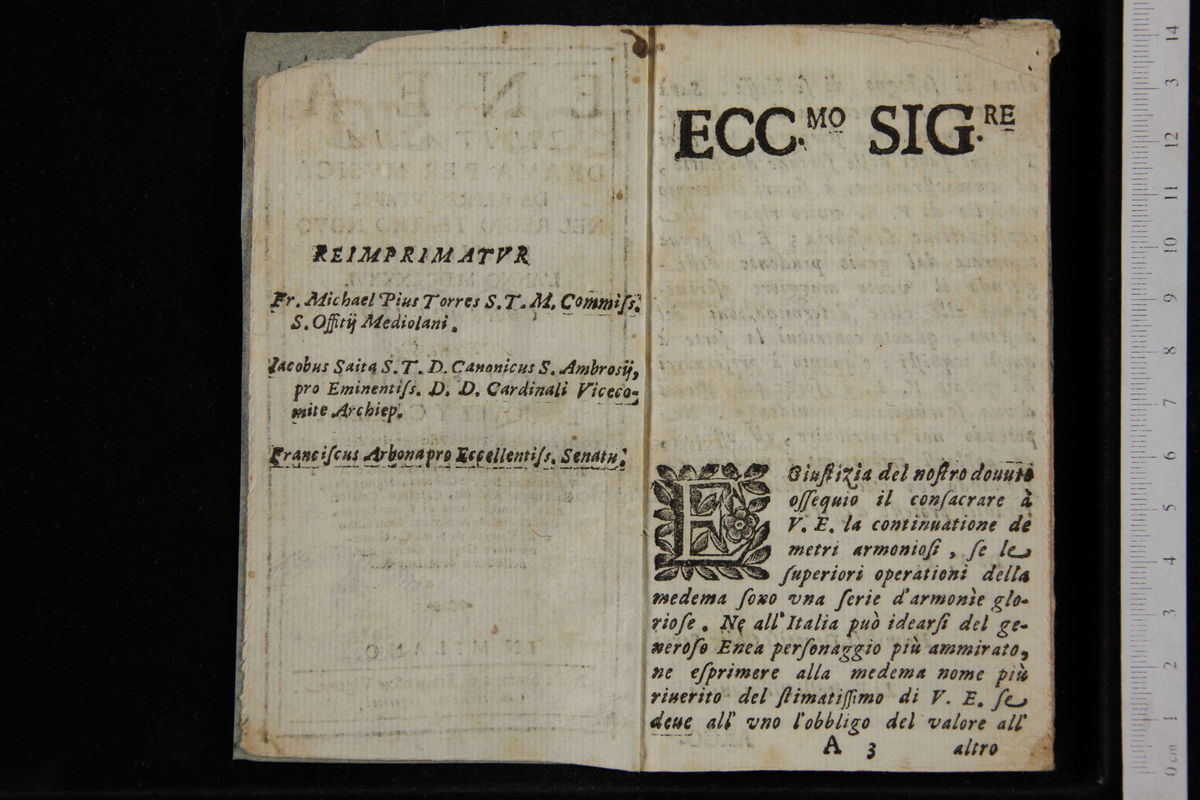 REIMPRIMATVR
Fr. Michael Pius Torres S. T. M. Commiſs.
S. Offitij Mediolani.
Jacobus Saita S. T. D. Canonicus S. Ambrosij,
pro Eminentiſs. D. D. Cardinali Viceco-
mite Archiep.
Franciſcus Arbona pro Eccellentiſs. Senatu.
ECC.MO SIG.RE
E Giuſtizia del noſtro douuto
oſſequio il conſacrare à
V. E. la continuatione de
metri armonioſi, ſe le
ſuperiori operationi della
medema ſono vna ſerie d'armonìe glo-
rioſe. Ne all'Italia può idearſi del ge-
neroſo Enea perſonaggio più ammirato,
ne eſprimere alla medema nome più
riuerito del ſtimatiſſimo di V. E. ſe
deue all' vno l'obbligo del valore all'
A 3 altro
14
3
12
11
10
9
8
7
6
5
4
3
2
1
0 cm